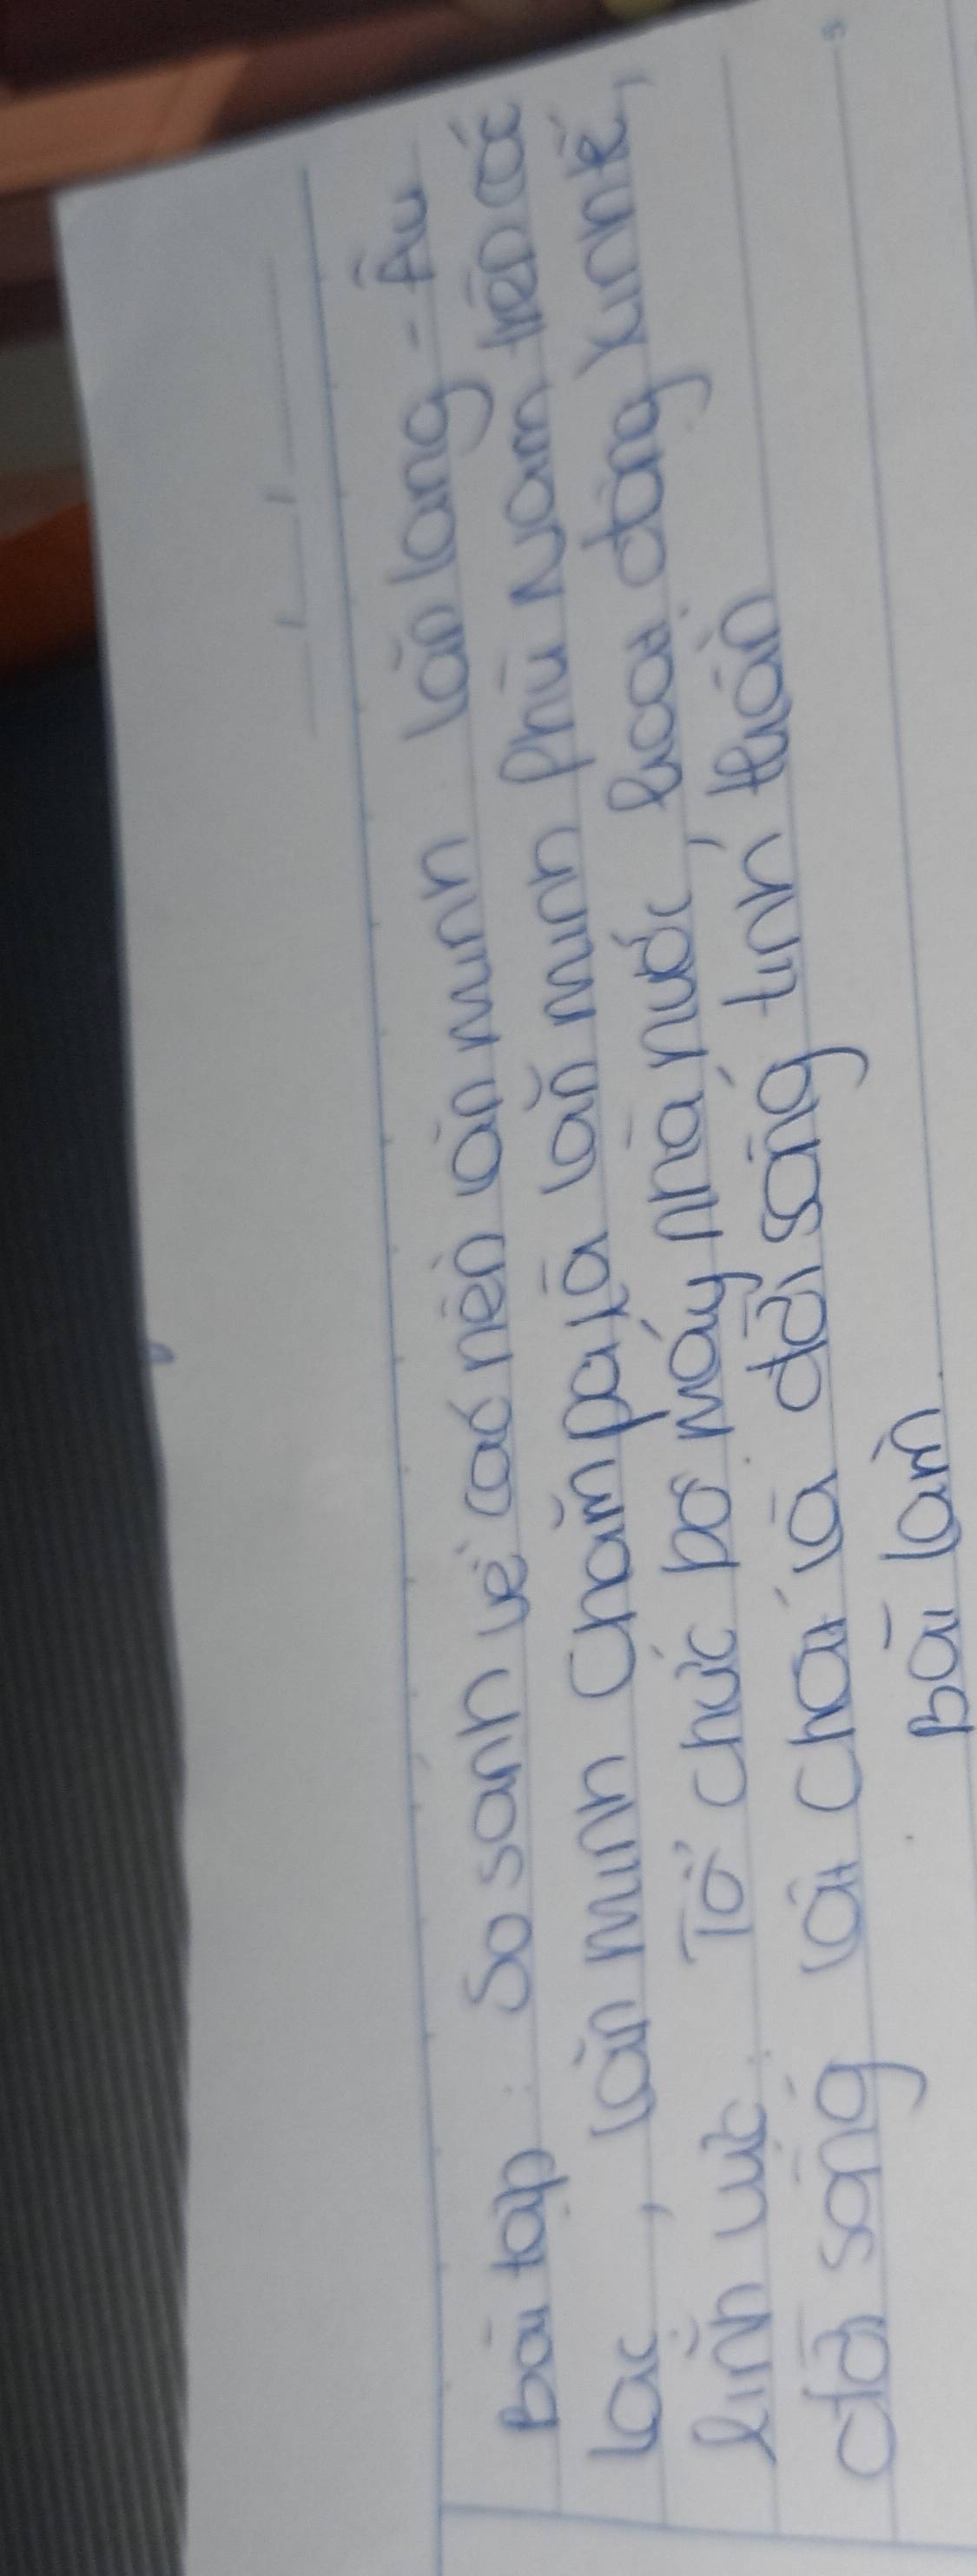 Bài tập : So sánh về các nền văn minh Văn Lang - Âu
Lạc, văn minh Chăm pa và văn minh Phù Nam trên các
lĩnh vực : Tổ chức bộ máy nhà nước, hoạt động kinh tế,
đời sống vật chất và đời sống tinh thần
Bài làm